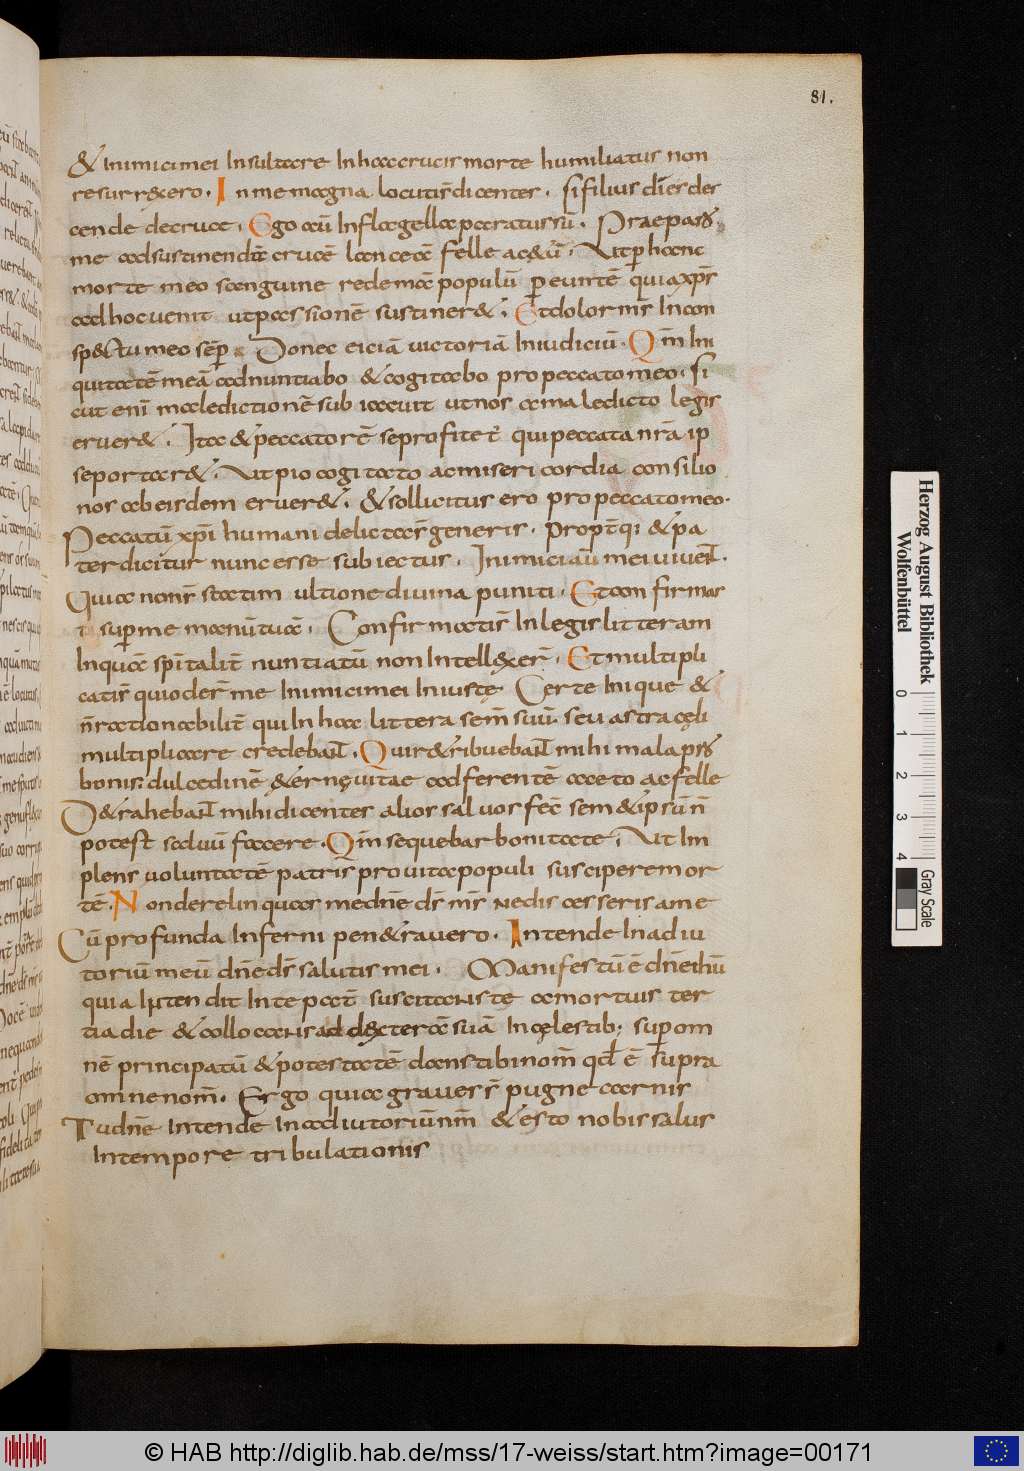 81.
& inimicimei Insultare Inhaccrucismorte humiliatus non
resurr&ero. In memagna locutis̄dicentes. sifilius dīesdes
cende decruce. Ego aūt Inflagellaparatussū. Praeparas
me adsustinendā crucē lancea felle ac&ū. Utꝑ hanc
morte meo sanguine redemā populū ꝑeuntē quiaxp̄s
adhocuenit utpassionē sustiner&. Etdolormeus Incon
sp&tumeo sēp Donec eiciā uictoriā Iniudiciū. Qm̄ Ini
quitatēmeā adnuntiabo &cogitabo propeccatomeo. si
cut enī maledictionēsub iacuit utnos amaledicto legis
eruer&. Ita &peccatorē seprofitet̄ quipeccata nr̄a ip
seportar&. Ut pio cogitato acmisericordia consilio
nos abeisdem eruer&. &sollicitus ero propeccatomeo.
Peccatū xp̄i humani delictaes̄generis. propt̄q; &pa
terdicitur nunc esse subiectus. Inimiciaūt meiuiuent.
Quia nons̄ statim ultione diuina puniti. Etconfirmat
i sup̄me manū tuā. Confirmatis̄ Inlegislitteram
Inquā spītalit̄ nuntiatū nonIntellexer̄. Etmultipli
catis̄ quioder̄me Inimicimei Iniustę Certe Inique &
n̄rationabilit̄ quiInhac littera sem̄ suū seu astra cęli
multiplicare credebant. Quir&ribuebant mihi malapro
bonis; dulcedinē &ernęuitae adferentē aceto acfelle
D&rahebant mihidicentes alios saluosfec̄ sem&ipsūn̄
potest saluū facere. Qm̄ sequebarbonitate; Ut Im
plens uoluntatē patris prouitapopuli susciperemor
tē. Nonderelinquas medn̄e ds̄ ms̄ Nedis cesserisame
Cū profunda Inferni pen&rauero. Intende Inadiu
toriū meū dn̄eds̄ salutis mei. Manifestū ē dn̄eihū
quia Intendit Inte pat̄ suscitanste amortuis ter
tiadie &collocansaddexterā suā Incęlestib; sup̄om
nē principatū &potestatē danstibinom̄ qd̄ ē supra
omnenom̄. Ergo quia graues s̄ pugne carnis
Tudn̄e Intende Inadiutoriūnr̄m &esto nobissalus
Intempore tribulationis
Herzog August Bibliothek
Wolfenbüttel
0 1 2 3 4
Gray Scale
© HAB http://diglib.hab.de/mss/17-weiss/start.htm?image=00171